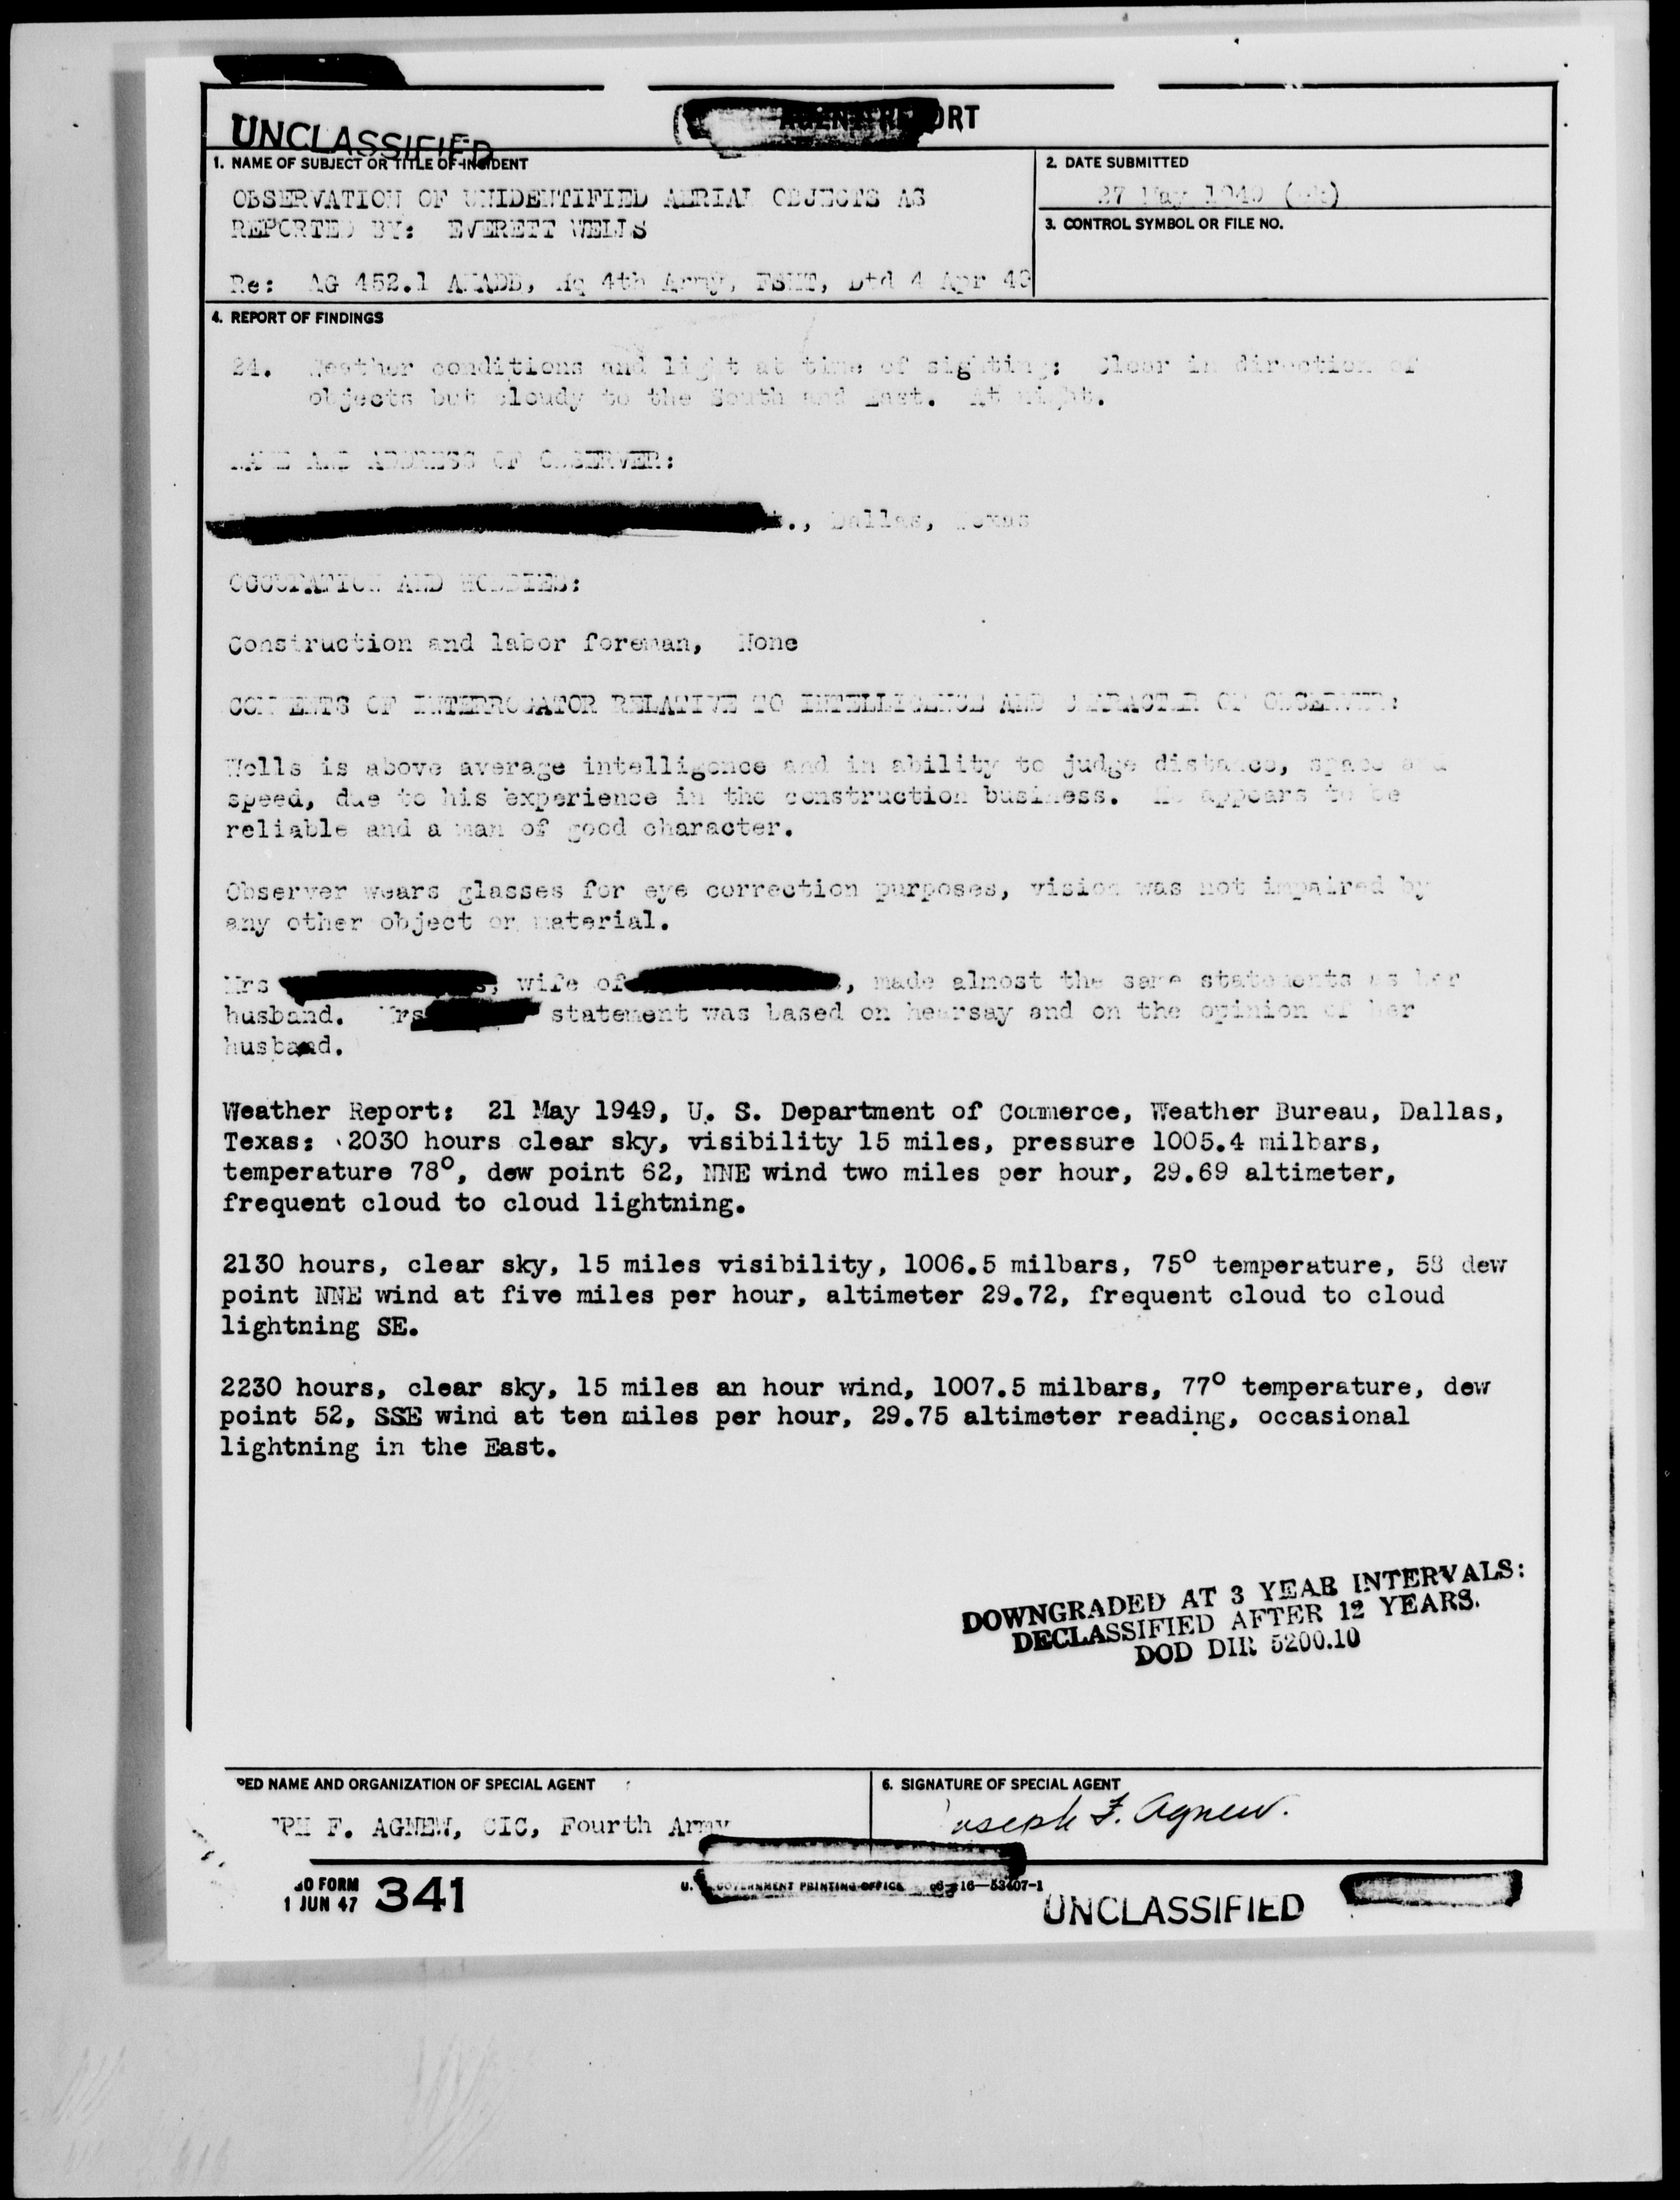 UNCLASSIFIED
1. NAME OF SUBJECT OR TITLE OF INCIDENT
OBSERVATION OF UNIDENTIFIED AERIAL OBJECTS AS
REPORTED BY: EVERETT WELLS
Re: AG 452.1 AKADB, Hq 4th Army, FSHT, Dtd 4 Apr 49
2. DATE SUBMITTED
27 May 1949
3. CONTROL SYMBOL OR FILE NO.
4. REPORT OF FINDINGS
24. Weather conditions and light at time of sighting: Clear in direction of
objects but cloudy to the South and East. At night.
NAME AND ADDRESS OF OBSERVER:
Dallas, Texas
OCCUPATION AND HOBBIES:
Construction and labor foreman, None
COMMENTS OF INTERROGATOR RELATIVE TO INTELLIGENCE AND CHARACTER OF OBSERVER:
Wells is above average intelligence and in ability to judge distance, space and
speed, due to his experience in the construction business. He appears to be
reliable and a man of good character.
Observer wears glasses for eye correction purposes, vision was not impaired by
any other object or material.
Mrs , wife of , made almost the same statements as her
husband. Mrs statement was based on hearsay and on the opinion of her
husband.
Weather Report: 21 May 1949, U. S. Department of Commerce, Weather Bureau, Dallas,
Texas: 2030 hours clear sky, visibility 15 miles, pressure 1005.4 milbars,
temperature 78°, dew point 62, NNE wind two miles per hour, 29.69 altimeter,
frequent cloud to cloud lightning.
2130 hours, clear sky, 15 miles visibility, 1006.5 milbars, 75° temperature, 58 dew
point NNE wind at five miles per hour, altimeter 29.72, frequent cloud to cloud
lightning SE.
2230 hours, clear sky, 15 miles an hour wind, 1007.5 milbars, 77° temperature, dew
point 52, SSE wind at ten miles per hour, 29.75 altimeter reading, occasional
lightning in the East.
DOWNGRADED AT 3 YEAR INTERVALS:
DECLASSIFIED AFTER 12 YEARS.
DOD DIR 5200.10
PED NAME AND ORGANIZATION OF SPECIAL AGENT
PH F. AGNEW, CIC, Fourth Army
6. SIGNATURE OF SPECIAL AGENT
Joseph F. Agnew.
FORM
1 JUN 47 341
U. GOVERNMENT PRINTING OFFICE 16—53407-1
UNCLASSIFIED